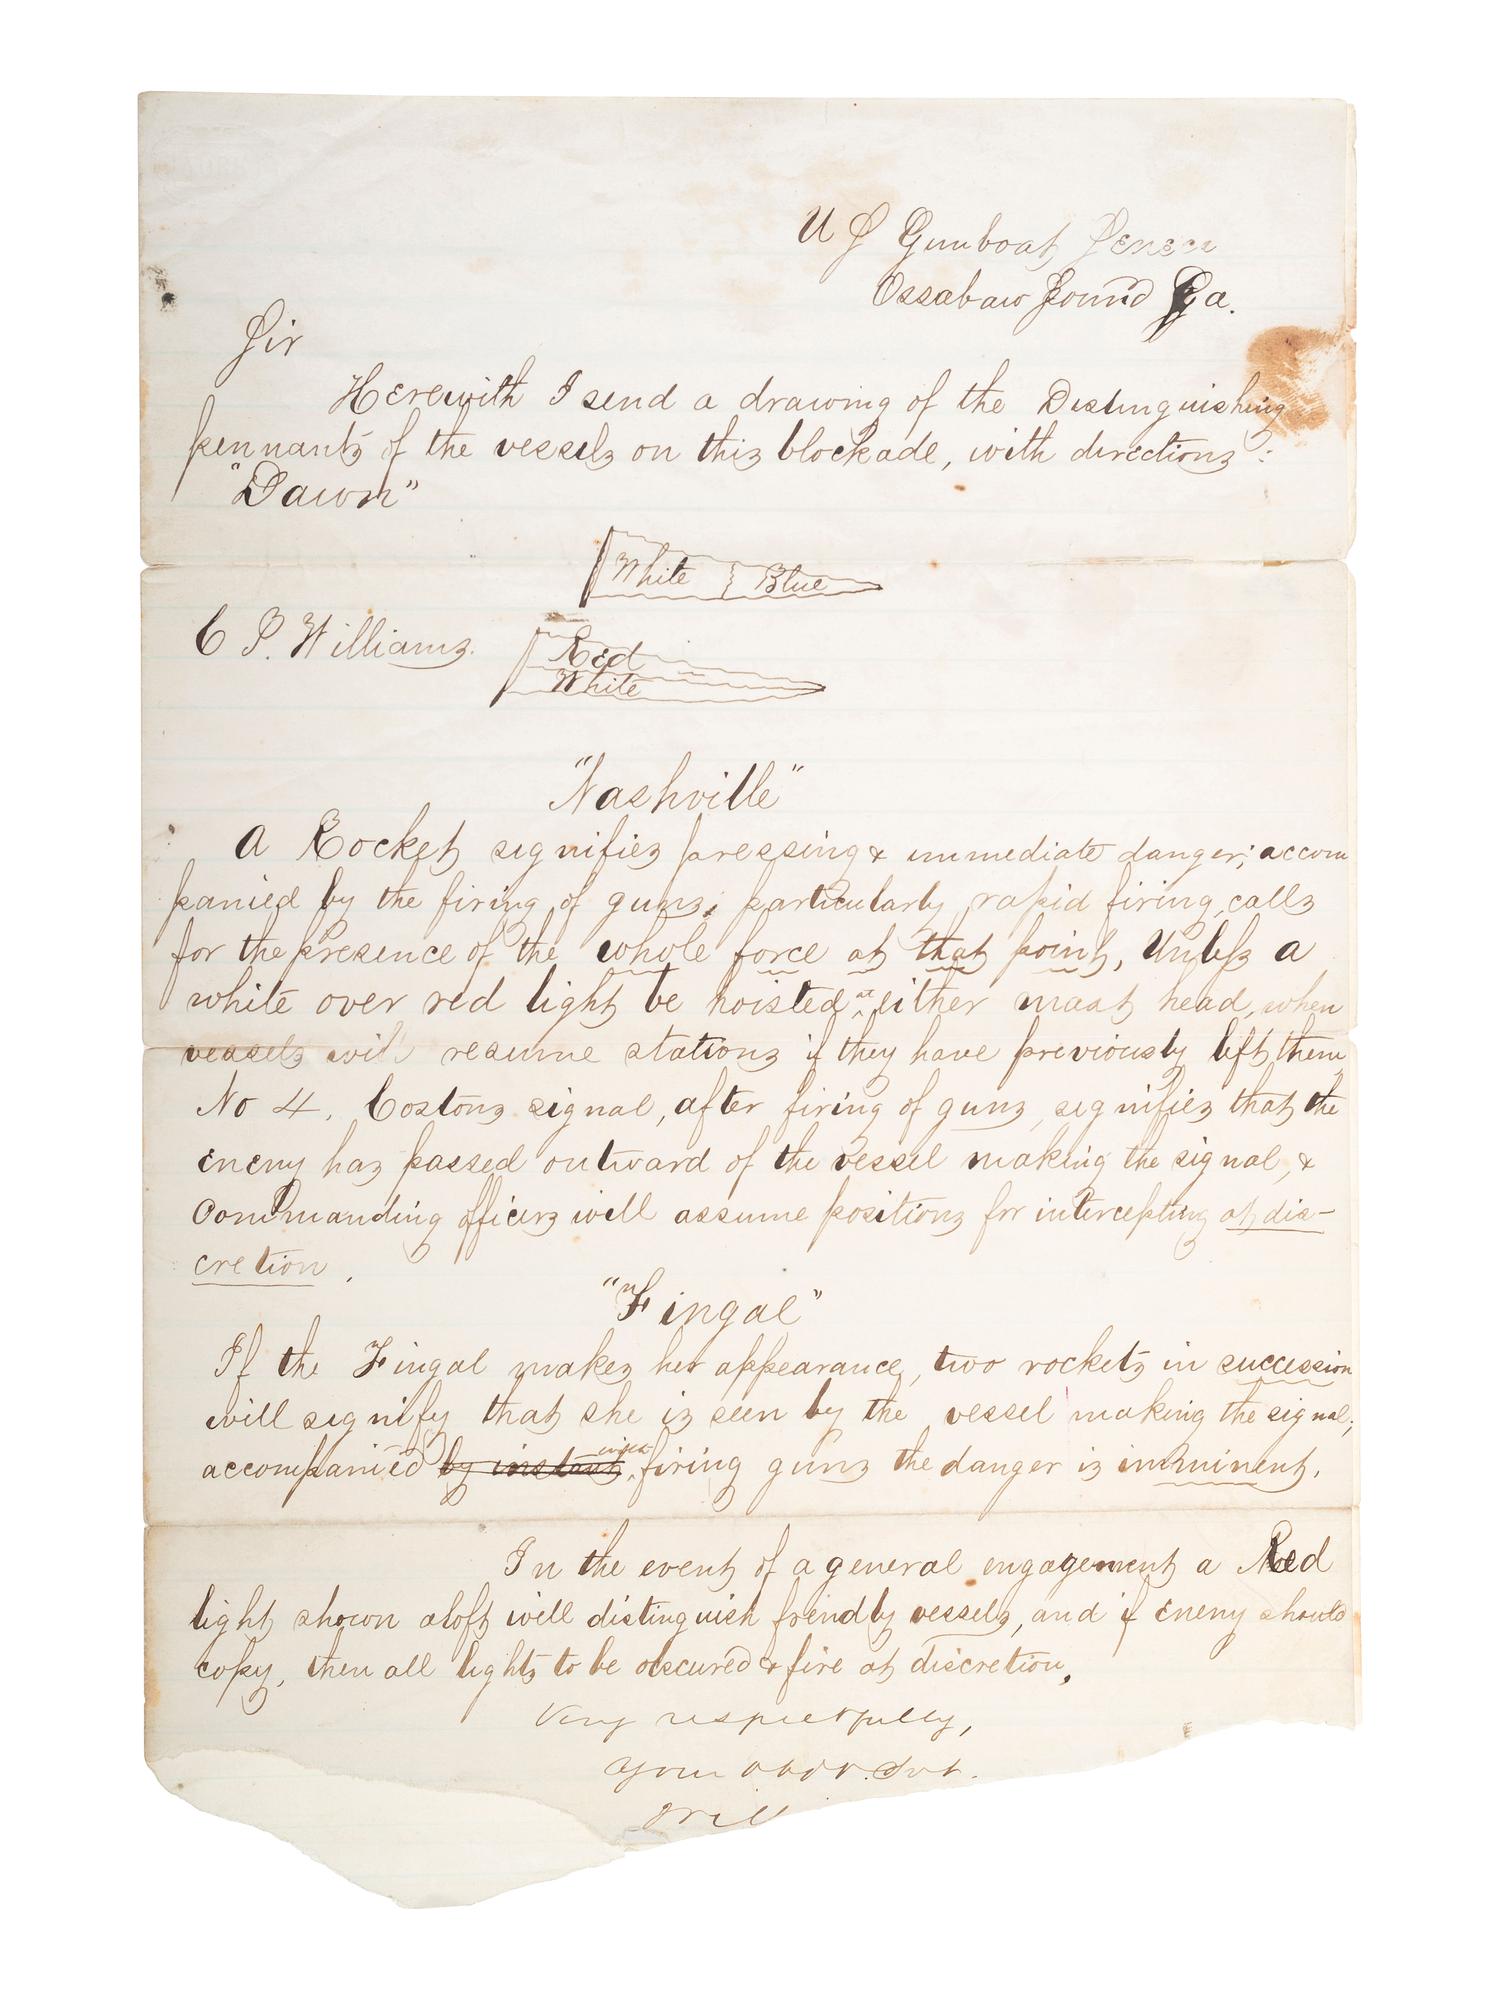 U S Gunboat Seneca
Ossabaw Sound Ga.
Sir
Herewith I send a drawing of the Distinguishing
pennants of the vessels on this blockade, with directions:
"Dawn"
White Blue
C P. Williams.
Red
White
"Nashville"
A Rocket signifies pressing & immediate danger; accom
panied by the firing of guns, particularly rapid firing, calls
for the presence of the whole force at that point, Unless a
white over red light be hoisted at either mast head, when
vessels will resume stations if they have previously left them
No 4, Costons signal, after firing of guns, signifies that the
enemy has passed outward of the vessel making the signal, &
Commanding officers will assume positions for intercepting at dis-
cretion.
"Fingal"
If the Fingal makes her appearance, two rockets in succession
will signify that she is seen by the vessel making the signal;
accompanied by instant firing guns the danger is imminent.
In the event of a general engagement a Red
light shown aloft will distinguish friendly vessels, and if enemy should
copy, then all lights to be obscured & fire at discretion.
Very respectfully,
Your Obdt. Svt.